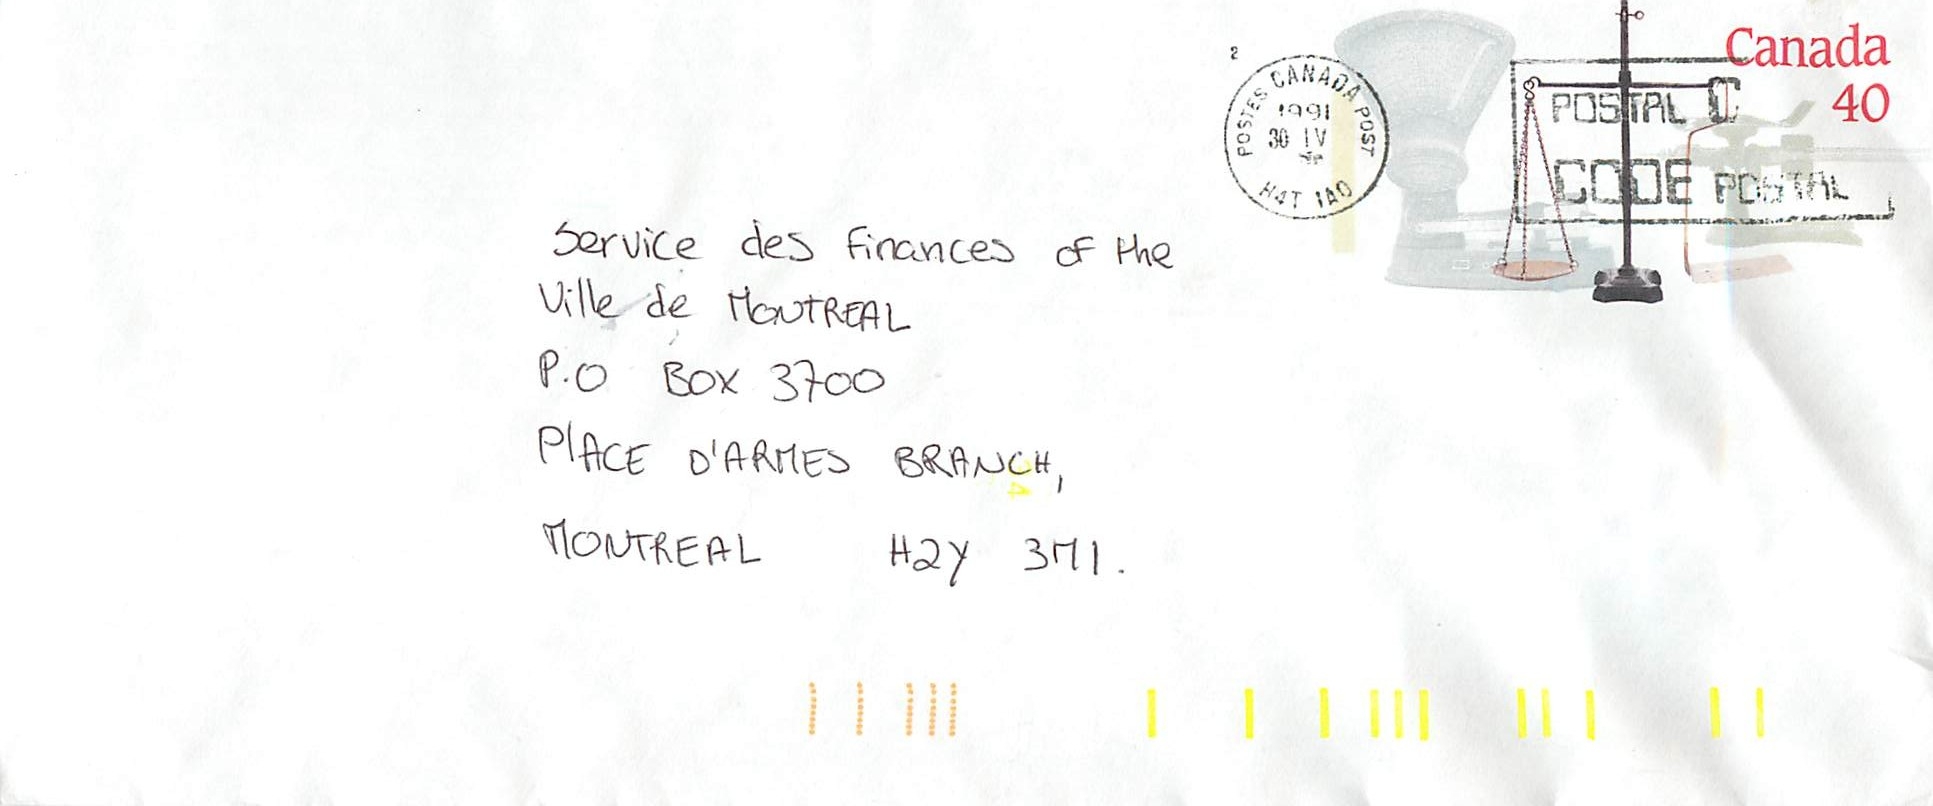 Canada
40
2
POSTES CANADA POST
1991
30 IV
H4T 1A0
POSTAL C
CODE POSTAL
Service des finances of the
Ville de MONTREAL
P.O BOX 3700
PLACE D'ARMES BRANCH,
MONTREAL H2Y 3M1.